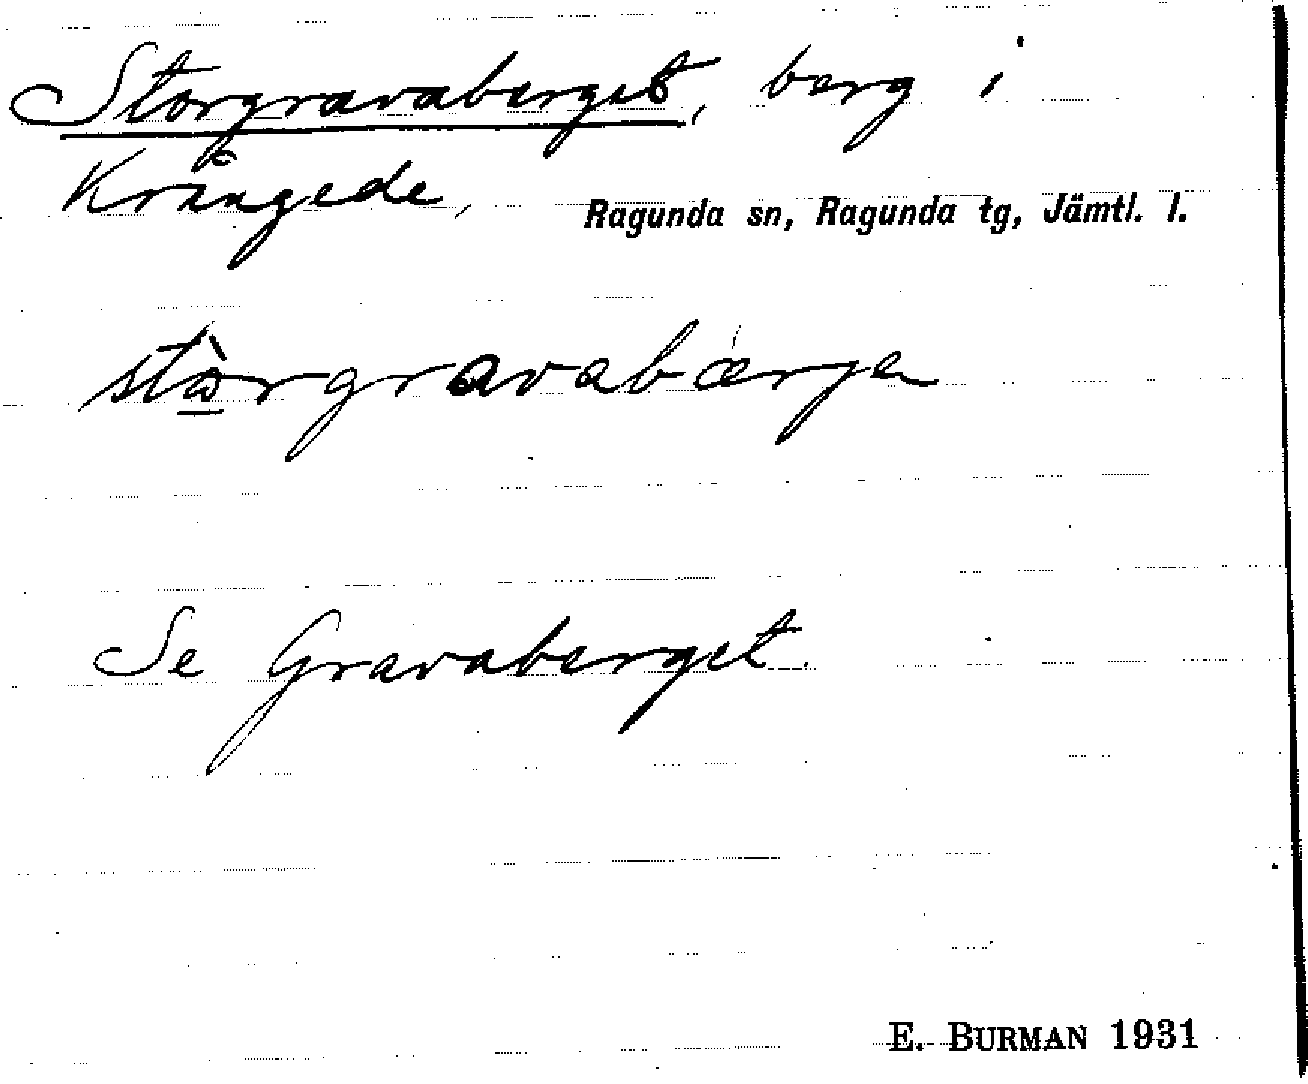 Storgravaberget, berg i
Krångede, Ragunda sn, Ragunda tg, Jämtl. l.
stòrgravabærje
Se Gravaberget.
E. BURMAN 1931